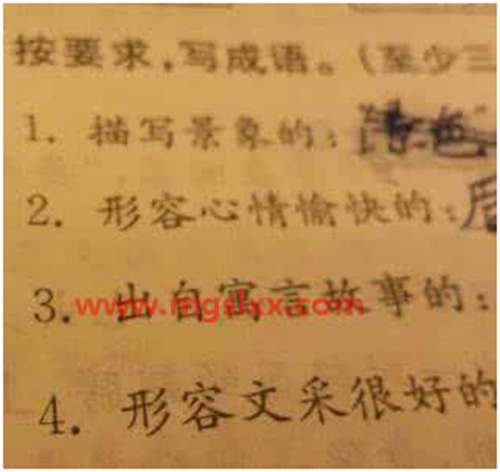 按要求，写成语。（至少三
1. 描写景象的：
2. 形容心情愉快的：
3. 出自寓言故事的：
4. 形容文采很好的